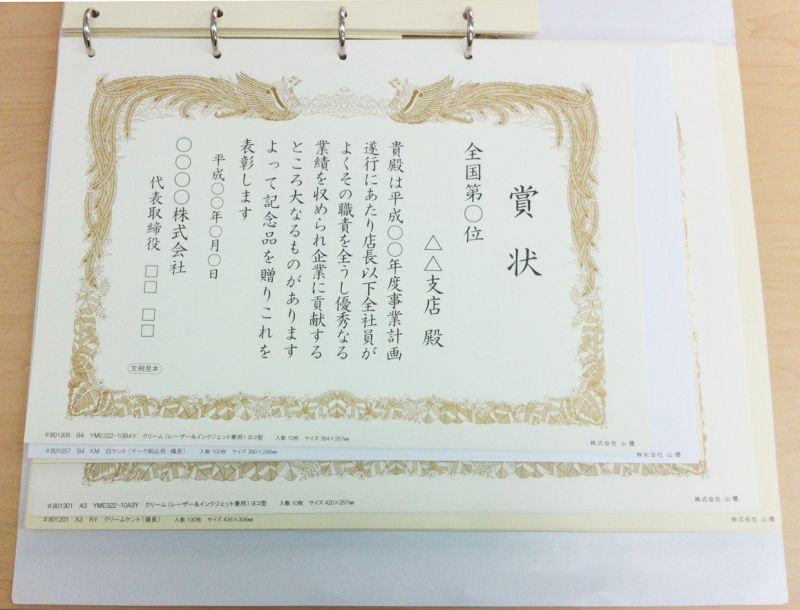 賞状
全国第〇位
△△支店 殿
貴殿は平成〇〇年度事業計画
遂行にあたり店長以下全社員が
よくその職責を全うし優秀なる
業績を収められ企業に貢献する
ところ大なるものがあります
よって記念品を贈りこれを
表彰します
平成〇〇年〇月〇日
〇〇〇〇株式会社
代表取締役 □□ □□
文例見本
#801305 B4 YME322-10B4Y クリーム(レーザー&インクジェット兼用)ヨコ型 入数10枚 サイズ384×257㎜
株式会社 山櫻
#801057 B4 KM 白ケント(マーク刷込用 横長) 入数100枚 サイズ390×266㎜
株式会社 山櫻
#801301 A3 YME322-10A3Y クリーム(レーザー&インクジェット兼用)ヨコ型 入数10枚 サイズ420×297㎜
株式会社 山櫻
#801201 A3 RY クリームケント(横長) 入数100枚 サイズ436×306㎜
株式会社 山櫻